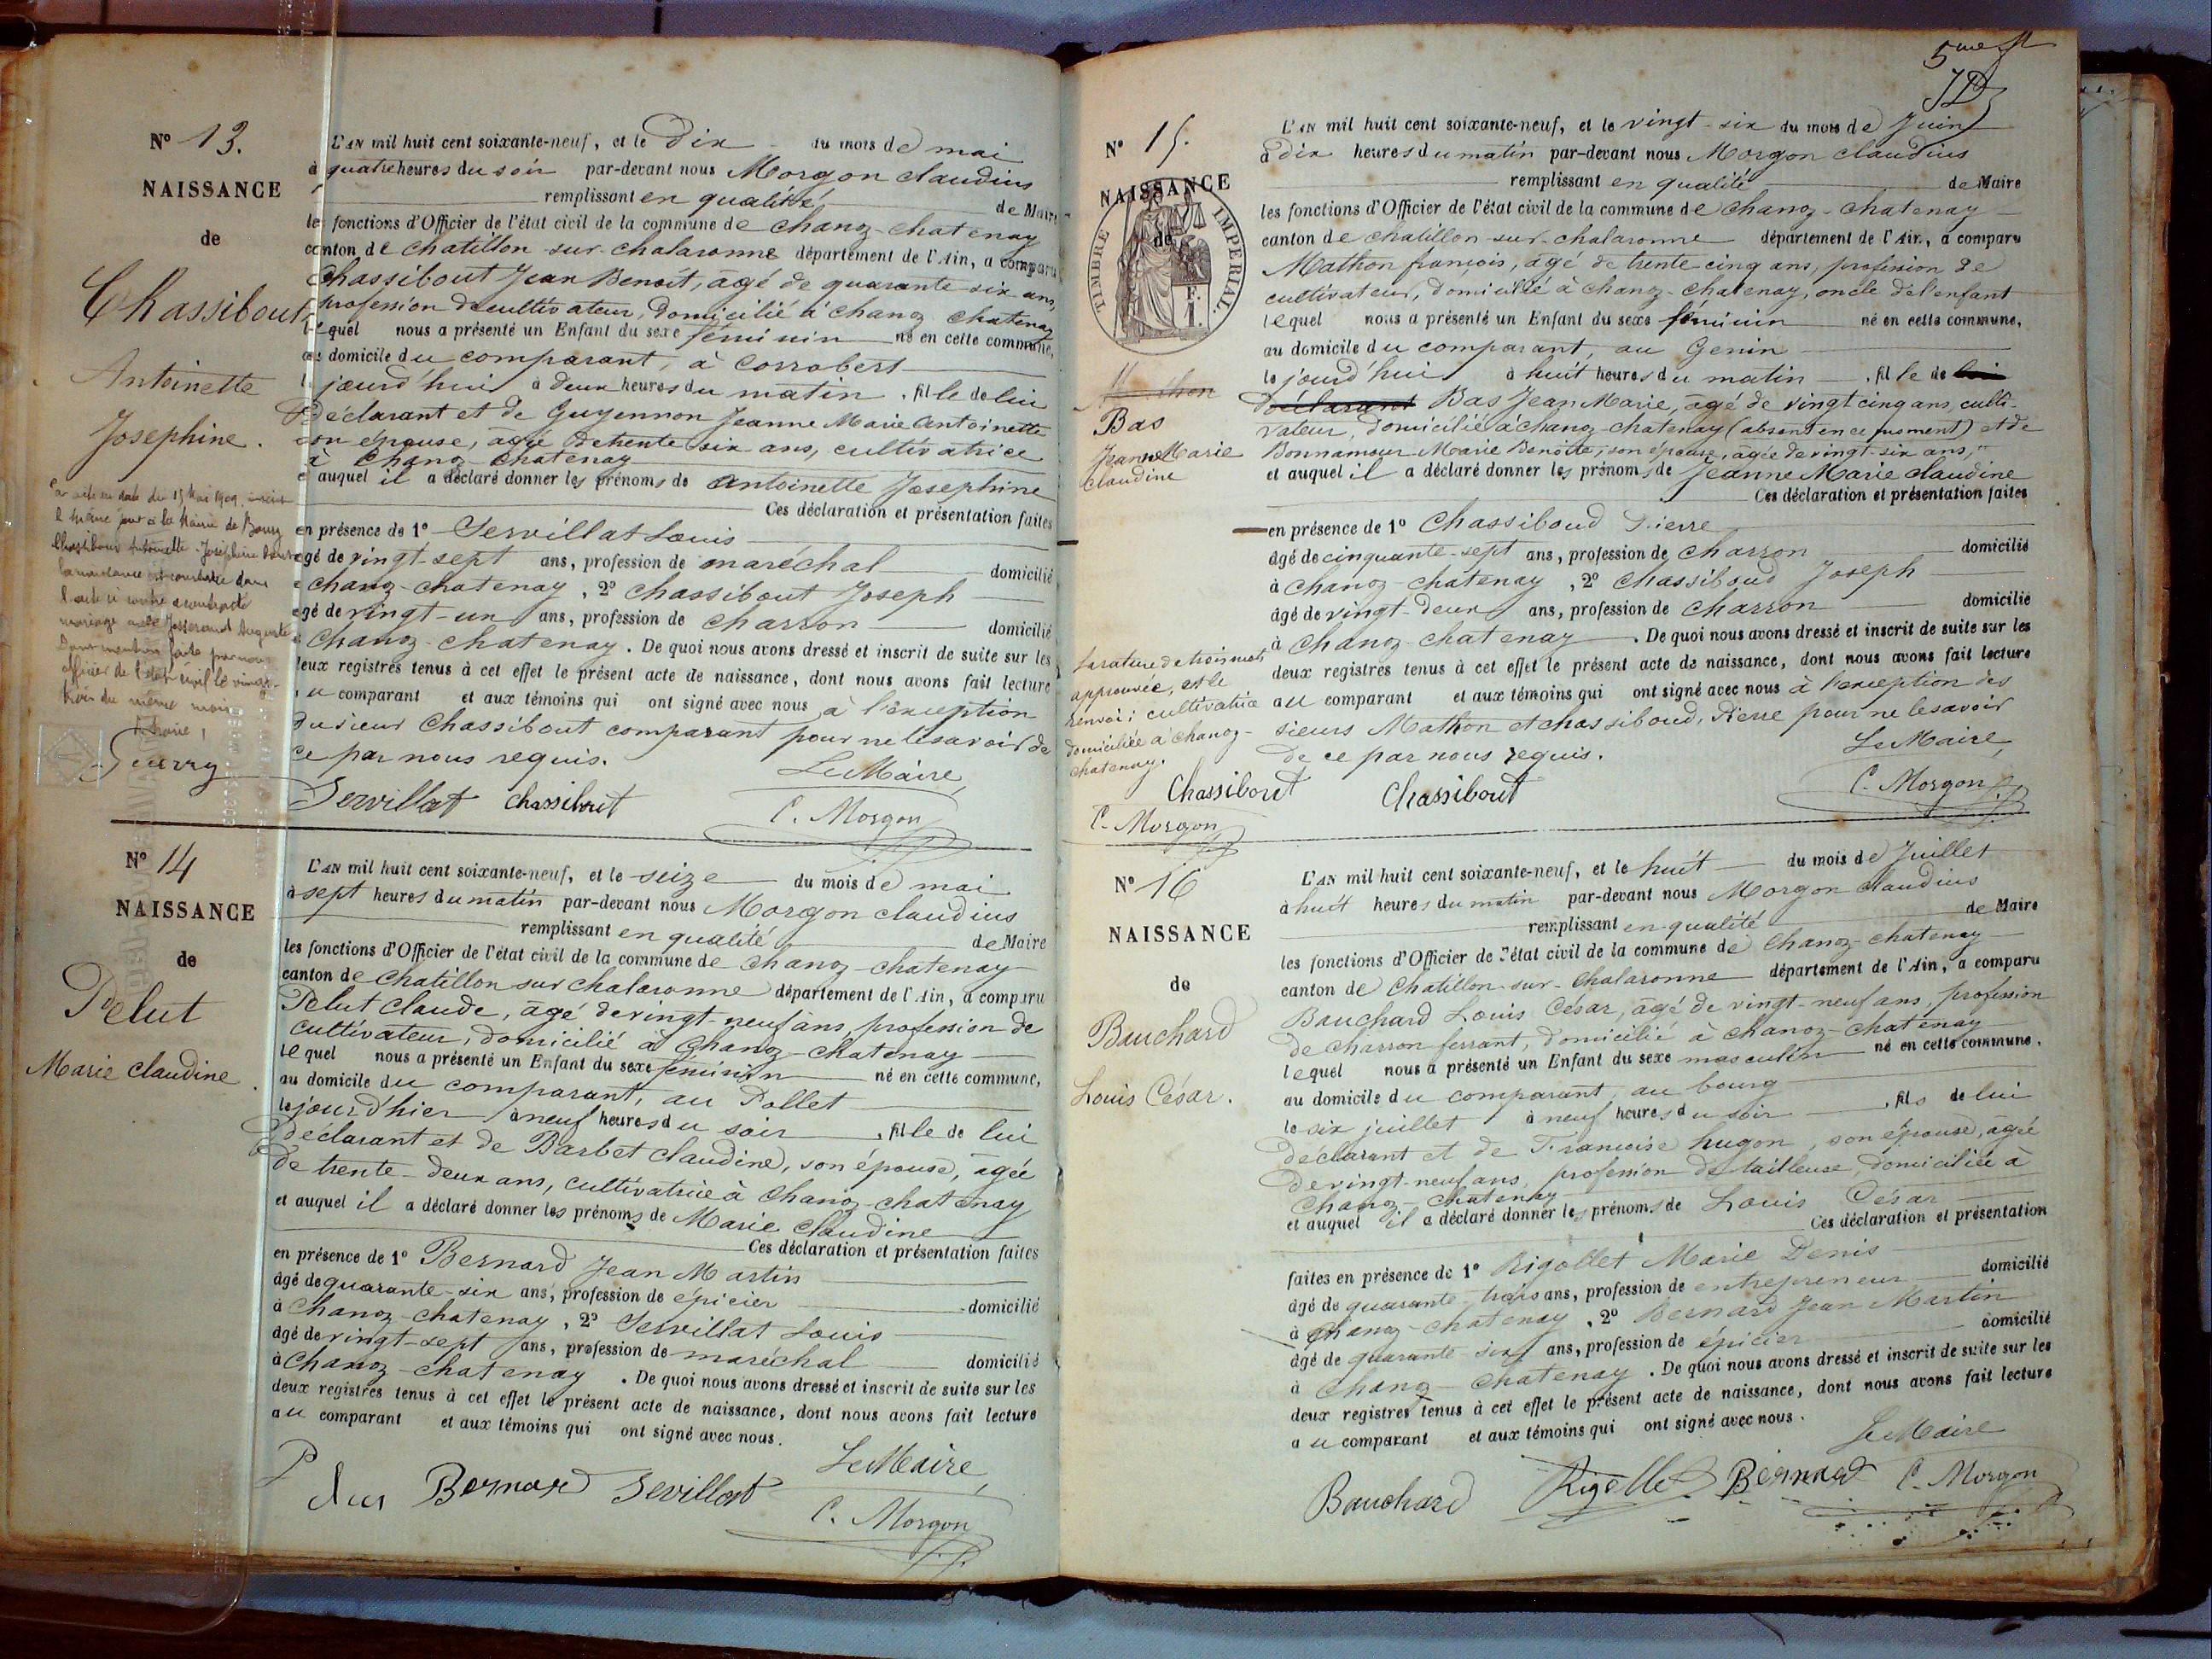 N° 13.
NAISSANCE
de
Chassibout
Antoinette
Josephine.
L'AN mil huit cent soixante-neuf, et le Dix du mois de mai
à quatre heures du soir par-devant nous Morgon claudius
remplissant en qualité de Maire
les fonctions d'Officier de l'état civil de la commune de chanoz-chatenay
canton de chatillon sur-chalaronne département de l'Ain, a comparu
Chassibout Jean Benoit, âgé de quarante six ans,
profession de cultivateur, domicilié à chanoz chatenay
lequel nous a présenté un Enfant du sexe féminin né en cette commune,
au domicile du comparant, à Corrobert
le jourd'hui à deux heures du matin, fille de lui
Déclarant et de Guyennon Jeanne Marie Antoinette
son épouse, âgée de trente six ans, cultivatrice
à chanoz chatenay
et auquel il a déclaré donner les prénoms de Antoinette Josephine
Ces déclaration et présentation faites
en présence de 1° Servillat Louis
âgé de vingt-sept ans, profession de maréchal domicilié
à chanoz-chatenay, 2° Chassibout Joseph
âgé de vingt-un ans, profession de charron domicilié
à chanoz-chatenay. De quoi nous avons dressé et inscrit de suite sur les
deux registres tenus à cet effet le présent acte de naissance, dont nous avons fait lecture
au comparant et aux témoins qui ont signé avec nous à l'exception
du sieur Chassibout comparant pour ne le savoir de
ce par nous requis.
Le Maire,
Servillat Chassibout C. Morgon
Par acte en date du 15 Mai 1909, inscrit
le même jour à la Mairie de Bourg
Chassibout Antoinette Josephine dont
la naissance est constatée dans
l'acte ci contre a contracté
mariage avec Josserand Auguste
Dont mention faite par nous
officier de l'état civil le vingt-
trois du même mois
Le Maire,
Guerry
N° 14
NAISSANCE
de
Pelut
Marie Claudine.
L'AN mil huit cent soixante-neuf, et le seize du mois de mai
à sept heures du matin par-devant nous Morgon claudius
remplissant en qualité de Maire
les fonctions d'Officier de l'état civil de la commune de chanoz-chatenay
canton de chatillon sur chalaronne département de l'Ain, a comparu
Pelut Claude, âgé de vingt-neuf ans, profession de
cultivateur, domicilié à chanoz-chatenay
lequel nous a présenté un Enfant du sexe féminin né en cette commune,
au domicile du comparant, au Pollet
le jourd'hier à neuf heures du soir, fille de lui
déclarant et de Barbet Claudine, son épouse, âgée
de trente-deux ans, cultivatrice à chanoz-chatenay
et auquel il a déclaré donner les prénoms de Marie Claudine
Ces déclaration et présentation faites
en présence de 1° Bernard Jean Martin
âgé de quarante-six ans, profession de épicier domicilié
à chanoz-chatenay, 2° Servillat Louis
âgé de vingt-sept ans, profession de maréchal domicilié
à chanoz-chatenay. De quoi nous avons dressé et inscrit de suite sur les
deux registres tenus à cet effet le présent acte de naissance, dont nous avons fait lecture
au comparant et aux témoins qui ont signé avec nous.
Le Maire,
Bernard Sevillat C. Morgon
5me
JD
N° 15.
NAISSANCE
de
TIMBRE IMPERIAL.
1 F.
Mathon
Bas
Jeanne Marie
Claudine
L'AN mil huit cent soixante-neuf, et le vingt-six du mois de Juin
à dix heures du matin par-devant nous Morgon claudius
remplissant en qualité de Maire
les fonctions d'Officier de l'état civil de la commune de chanoz-chatenay
canton de chatillon-sur-chalaronne département de l'Ain, a comparu
Mathon françois, âgé de trente cinq ans, profession de
cultivateur, domicilié à chanoz-chatenay, oncle de l'enfant
lequel nous a présenté un Enfant du sexe féminin né en cette commune,
au domicile du comparant, au Genin
le jourd'hui à huit heures du matin, fille de lui
déclarant Bas Jean Marie, âgé de vingt cinq ans, culti-
vateur, domicilié à chanoz-chatenay (absent en ce moment) et de
Bonnamour Marie Benoite, son épouse, âgée de vingt-six ans,
et auquel il a déclaré donner les prénoms de Jeanne Marie Claudine
Ces déclaration et présentation faites
en présence de 1° Chassiboud Pierre
âgé de cinquante-sept ans, profession de charron domicilié
à chanoz-chatenay, 2° Chassiboud Joseph
âgé de vingt-deux ans, profession de charron domicilié
à chanoz-chatenay. De quoi nous avons dressé et inscrit de suite sur les
deux registres tenus à cet effet le présent acte de naissance, dont nous avons fait lecture
au comparant et aux témoins qui ont signé avec nous à l'exception des
sieurs Mathon et chassiboud, Pierre pour ne le savoir
de ce par nous requis.
Le Maire,
Chassibout Chassibout C. Morgon
La rature de trois mots
approuvée, et le
renvoi: cultivatrice
domiciliée à chanoz-
chatenay.
C. Morgon
N° 16
NAISSANCE
de
Bauchard
Louis César.
L'AN mil huit cent soixante-neuf, et le huit du mois de Juillet
à huit heures du matin par-devant nous Morgon claudius
remplissant en qualité de Maire
les fonctions d'Officier de l'état civil de la commune de Chanoz-chatenay
canton de Chatillon-sur-Chalaronne département de l'Ain, a comparu
Bauchard Louis César, âgé de vingt-neuf ans, profession
de charron ferrant, domicilié à chanoz-chatenay
lequel nous a présenté un Enfant du sexe masculin né en cette commune,
au domicile du comparant, au bourg
le six juillet à neuf heures du soir, fils de lui
déclarant et de Françoise hugon, son épouse, âgée
de vingt-neuf ans, profession de tailleuse, domiciliée à
Chanoz-chatenay
et auquel il a déclaré donner les prénoms de Louis César
Ces déclaration et présentation
faites en présence de 1° Rigollet Marie Denis
âgé de quarante-trois ans, profession de entrepreneur domicilié
à Chanoz-chatenay, 2° Bernard Jean Martin
âgé de quarante six ans, profession de épicier domicilié
à Chanoz-Chatenay. De quoi nous avons dressé et inscrit de suite sur les
deux registres tenus à cet effet le présent acte de naissance, dont nous avons fait lecture
au comparant et aux témoins qui ont signé avec nous.
Le Maire
Bauchard Rigollet Bernard C. Morgon